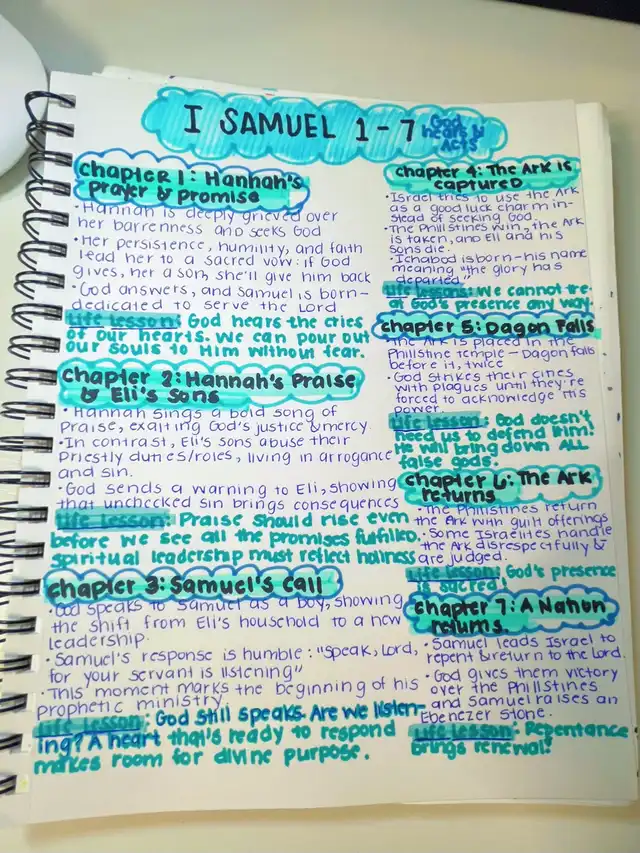 I SAMUEL 1-7
God
hears &
ACTS
Chapter 1: Hannah's
Prayer & Promise
• Hannah is deeply grieved over
her barrenness and seeks God
• Her persistence, humility, and faith
lead her to a sacred vow: if God
gives, her a son, she'll give him back
• God answers, and Samuel is born-
dedicated to serve the Lord
Life lesson: God hears the cries
of our hearts. We can pour out
our souls to Him without fear.
Chapter 2: Hannah's Praise
& Eli's Sons
• Hannah sings a bold song of
Praise, exalting God's justice & mercy.
• In contrast, Eli's sons abuse their
Priestly duties/roles, living in arrogance
and sin.
• God sends a warning to Eli, showing
that unchecked sin brings consequences
Life lesson: Praise should rise even
before we see all the promises fulfilled.
Spiritual leadership must reflect holiness
chapter 3: Samuel's Call
• God speaks to Samuel as a boy, showing
the shift from Eli's household to a new
leadership.
• Samuel's response is humble: "Speak, Lord,
for your servant is listening"
• This moment marks the beginning of his
Prophetic ministry.
Life lesson: God still speaks. Are we listen-
ing? A heart that's ready to respond
makes room for divine purpose.
Chapter 4: The Ark is
captured
• Israel tries to use the Ark
as a good luck charm in-
stead of seeking God.
• The Philistines win, the Ark
is taken, and Eli and his
sons die.
• Ichabod is born - his name
meaning "the glory has
departed."
Life lessons: We cannot tre-
at God's presence any way.
chapter 5: Dagon Falls
• The Ark is placed in the
Philistine Temple - Dagon falls
before it, twice
• God strikes their cities
with plagues until they're
forced to acknowledge His
power.
Life lesson: God doesn't
need us to defend Him!
He will bring down ALL
false gods.
Chapter 6: The Ark
returns
• The Philistines return
the Ark with guilt offerings
• Some Israelites handle
the Ark disrespectfully &
are judged.
Life lesson: God's presence
is sacred!
Chapter 7: A Nation
returns.
• Samuel leads Israel to
repent & return to the Lord.
• God gives them victory
over the Philistines
and Samuel raises an
Ebenezer stone.
Life lesson: Repentance
brings renewal!